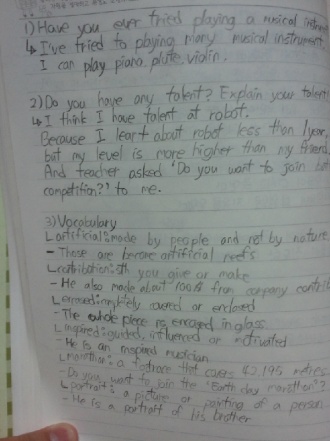 1) Have you ever tried playing a musical instrument
↳ I've tried to playing many musical instrument.
I can play piano, plute, violin.
2) Do you have any talent? Explain your talent
↳ I think I have talent at robot.
Because I leart about robot less than 1year,
but my level is more higher than my friend
And teacher asked 'Do you want to join
competition?' to me.
3) Vocabulary
artificial: made by people and not by nature
- These are become artificial reefs
contribution: sth you give or make
- He also made about from company contrib
encased: completely covered or enclosed
- The whole piece is encased in glass
inspired: guided, influenced or motivated
- He is an inspired musician
marathon: a footrace that covers 42.195 metres
- Do you want to join the "Earth day marathon"?
portrait: a picture or painting of a person
- He is a portrait of his brother